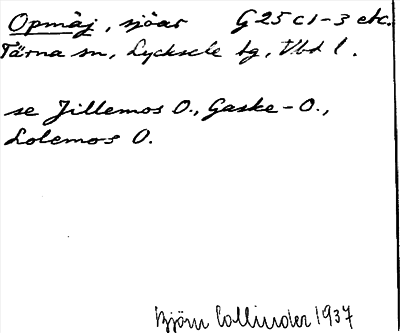 Opmåj, sjöar G 25 c 1-3 etc.
Tärna sn, Lycksele tg, Vbd l.
se Jillemos O., Gaske-O.,
Lolemos O.
Björn Collinder 1937